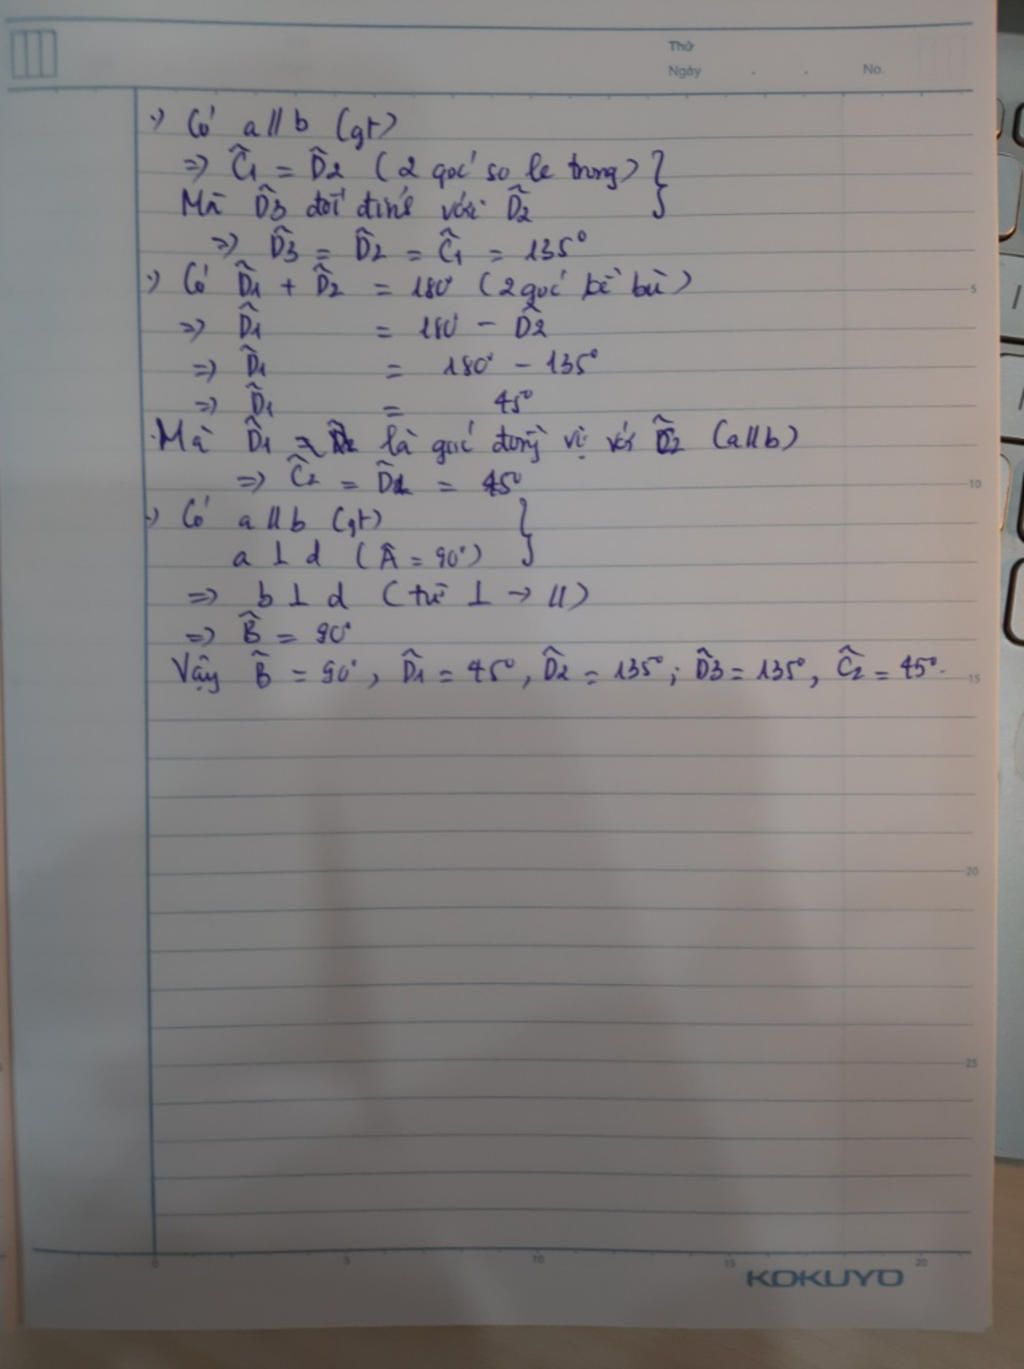 Thứ
Ngày . . No.
·) Có a // b (gt)
=> Ĉ1 = D̂2 (2 góc so le trong) }
Mà D̂3 đối đỉnh với D̂2
=> D̂3 = D̂2 = Ĉ1 = 135°
·) Có D̂1 + D̂2 = 180° (2 góc kề bù)
=> D̂1 = 180° - D̂2
=> D̂1 = 180° - 135°
=> D̂1 = 45°
Mà D̂1 là góc đồng vị với Ĉ2 (a//b)
=> Ĉ2 = D̂1 = 45°
·) Có a // b (gt) }
a ⊥ d (Â = 90°)
=> b ⊥ d (từ ⊥ → //)
=> B̂ = 90°
Vậy B̂ = 90°, D̂1 = 45°, D̂2 = 135°; D̂3 = 135°, Ĉ2 = 45°.
5
10
15
20
25
0 5 10 15 20
KOKUYO